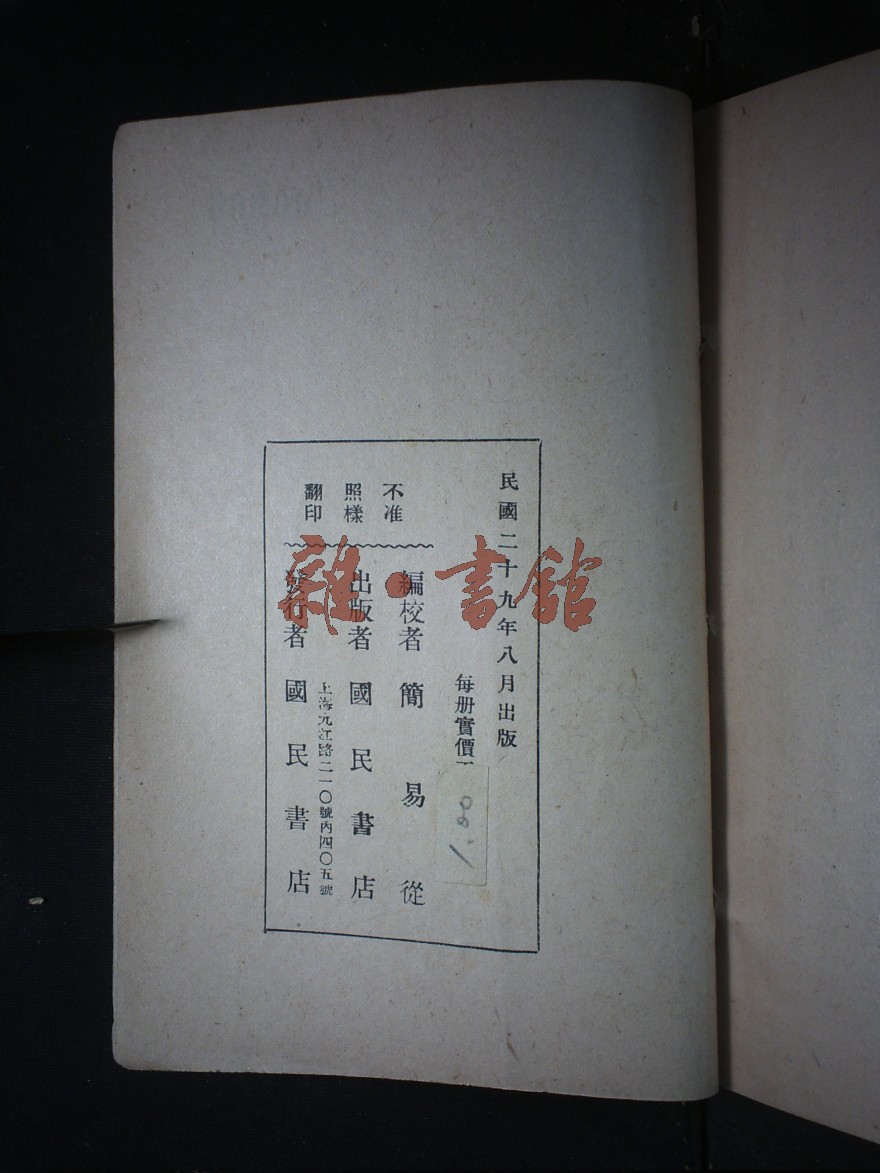 民國二十九年八月出版
每册實價
1.80
不准
照樣
翻印
編校者 簡易從
出版者 國民書店
上海九江路二一〇號內四〇五號
發行者 國民書店
雜·書館